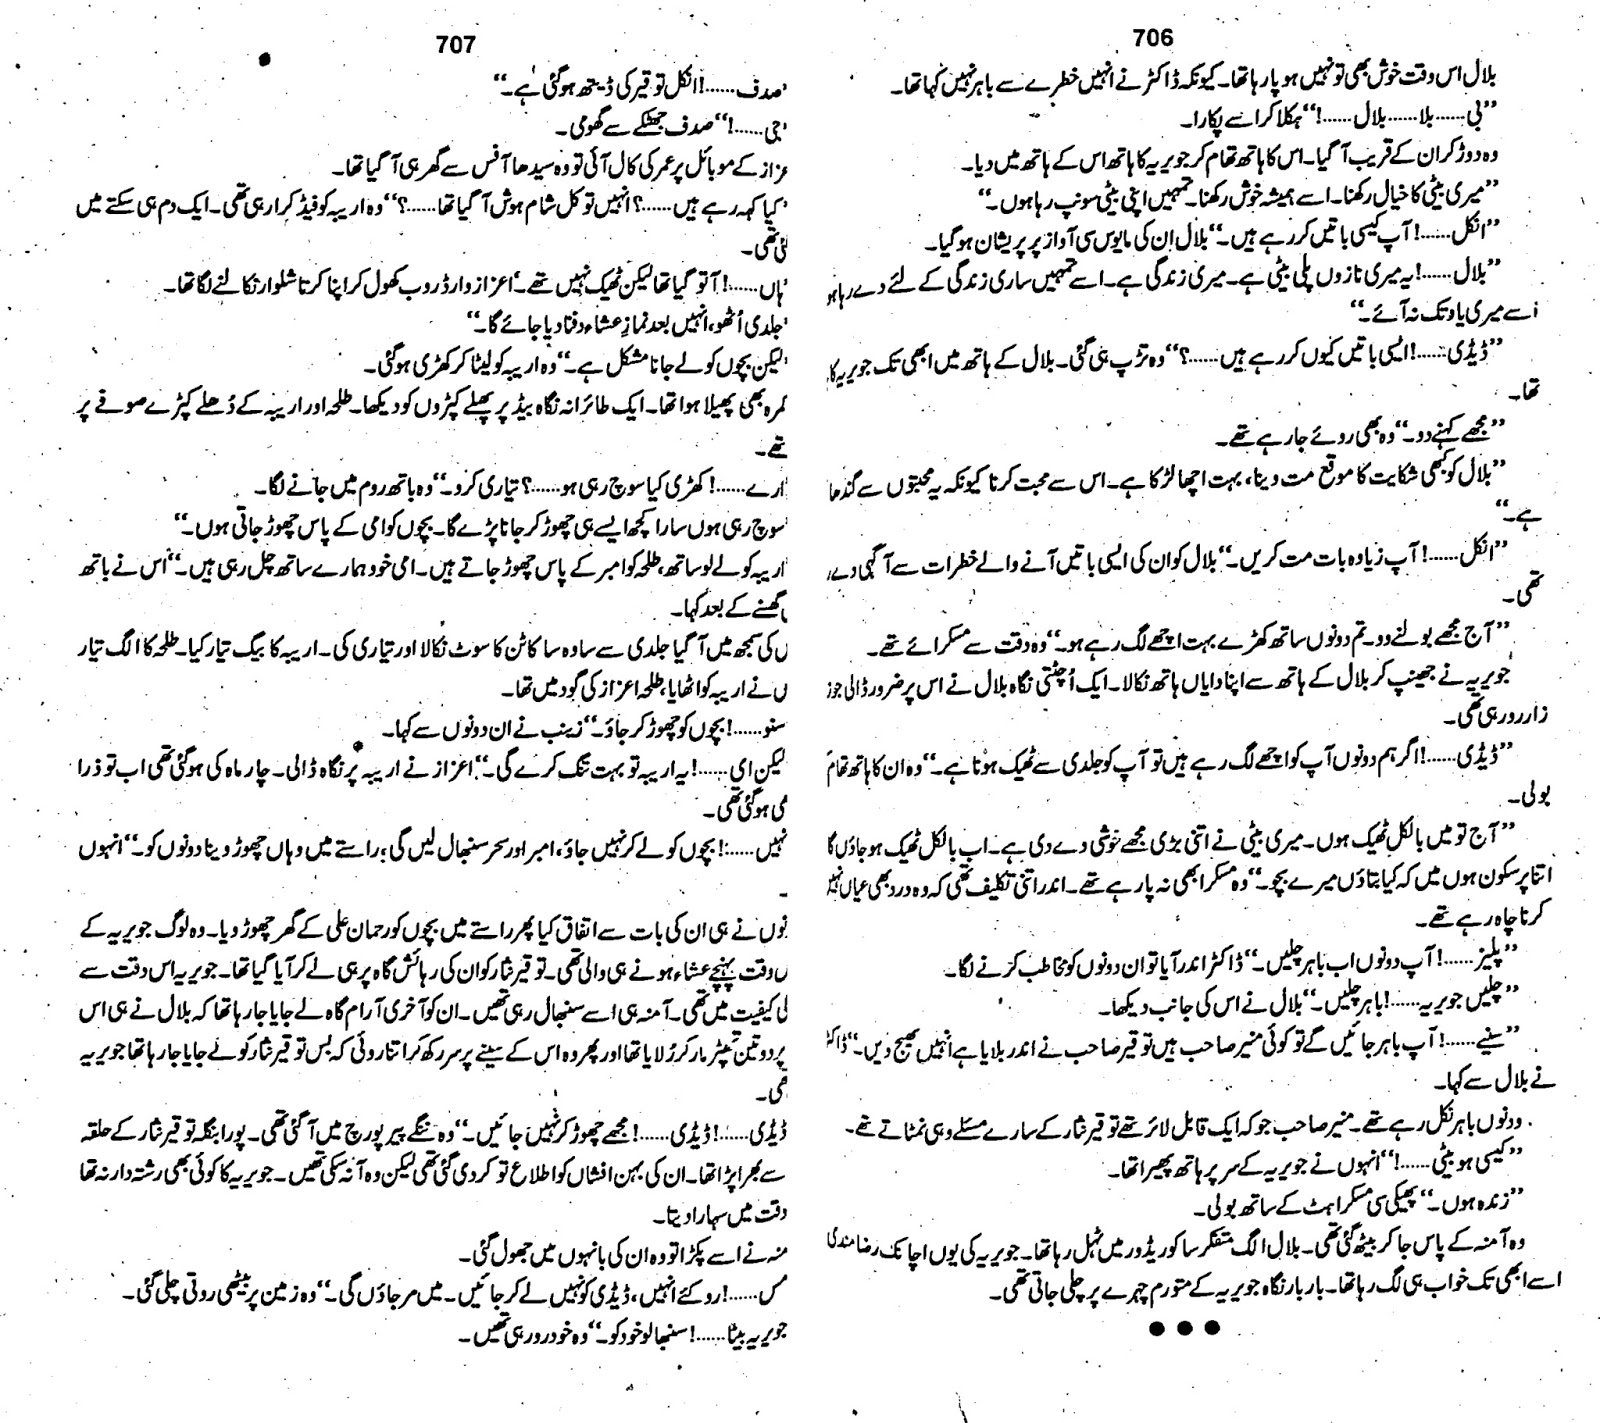 706
بلال اس وقت خوش بھی تو نہیں ہو پا رہا تھا۔ کیونکہ ڈاکٹر نے انہیں خطرے سے باہر نہیں کہا تھا۔
”بی...... بلا...... بلال......!“ ہکلا کر اسے پکارا۔
وہ دوڑ کر ان کے قریب آ گیا۔ اس کا ہاتھ تھام کر جویریہ کا ہاتھ اس کے ہاتھ میں دیا۔
”میری بیٹی کا خیال رکھنا۔ اسے ہمیشہ خوش رکھنا۔ تمہیں اپنی بیٹی سونپ رہا ہوں۔“
”انکل......! آپ کیسی باتیں کر رہے ہیں۔“ بلال ان کی مایوس سی آواز پر پریشان ہو گیا۔
”بلال......! یہ میری نازوں پلی بیٹی ہے۔ میری زندگی ہے۔ اسے تمہیں ساری زندگی کے لئے دے رہا ہو
اسے میری یاد تک نہ آئے۔“
”ڈیڈی......! ایسی باتیں کیوں کر رہے ہیں......؟“ وہ تڑپ ہی گئی۔ بلال کے ہاتھ میں ابھی تک جویریہ کا
تھا۔
”مجھے کہنے دو۔“ وہ بھی روئے جا رہے تھے۔
”بلال کو کبھی شکایت کا موقع مت دینا، بہت اچھا لڑکا ہے۔ اس سے محبت کرنا کیونکہ یہ محبتوں سے گندھا
ہے۔“
”انکل......! آپ زیادہ بات مت کریں۔“ بلال کو ان کی ایسی باتیں آنے والے خطرات سے آگہی دے ر
تھی۔
”آج مجھے بولنے دو۔ تم دونوں ساتھ کھڑے بہت اچھے لگ رہے ہو۔“ وہ دقت سے مسکرائے تھے۔
جویریہ نے جھینپ کر بلال کے ہاتھ سے اپنا دایاں ہاتھ نکالا۔ ایک اُچٹتی نگاہ بلال نے اس پر ضرور ڈالی جو ز
زار رو رہی تھی۔
”ڈیڈی......! اگر ہم دونوں آپ کو اچھے لگ رہے ہیں تو آپ کو جلدی سے ٹھیک ہونا ہے۔“ وہ ان کا ہاتھ تھام
بولی۔
”آج تو میں بالکل ٹھیک ہوں۔ میری بیٹی نے اتنی بڑی مجھے خوشی دے دی ہے۔ اب بالکل ٹھیک ہو جاؤں گا
اتنا پرسکون ہوں میں کہ کیا بتاؤں میرے بچو۔“ وہ مسکرا بھی نہ پا رہے تھے۔ اندر اتنی تکلیف تھی کہ وہ درد بھی عیاں نہیں
کرنا چاہ رہے تھے۔
”پلیز......! آپ دونوں اب باہر چلیں۔“ ڈاکٹر اندر آیا تو ان دونوں کو مخاطب کرنے لگا۔
”چلیں جویریہ......! باہر چلیں۔“ بلال نے اس کی جانب دیکھا۔
”سنیے......! آپ باہر جائیں گے تو کوئی منیر صاحب ہیں توقیر صاحب نے اندر بلایا ہے انہیں بھیج دیں۔“ ڈاکٹر
نے بلال سے کہا۔
دونوں باہر نکل رہے تھے۔ منیر صاحب جو کہ ایک قابل لائر تھے توقیر نثار کے سارے مسئلے وہی نمٹاتے تھے۔
”کیسی ہو بیٹی......!“ انہوں نے جویریہ کے سر پر ہاتھ پھیرا تھا۔
”زندہ ہوں۔“ پھیکی سی مسکراہٹ کے ساتھ بولی۔
وہ آمنہ کے پاس جا کر بیٹھ گئی تھی۔ بلال الگ متفکر سا کوریڈور میں ٹہل رہا تھا۔ جویریہ کی یوں اچانک رضا مندی
اسے ابھی تک خواب ہی لگ رہا تھا۔ بار بار نگاہ جویریہ کے متورم چہرے پر چلی جاتی تھی۔
●●●
707
صدف......! انکل توقیر کی ڈیتھ ہو گئی ہے۔“
جی......!“ صدف جھٹکے سے گھومی۔
عزاز کے موبائل پر عمر کی کال آئی تو وہ سیدھا آفس سے گھر ہی آ گیا تھا۔
کیا کہہ رہے ہیں......؟ انہیں تو کل شام ہوش آ گیا تھا......؟“ وہ اریبہ کو فیڈ کرا رہی تھی۔ ایک دم ہی سکتے میں
گئی تھی۔
ہاں......! آ تو گیا تھا لیکن ٹھیک نہیں تھے۔“ اعزاز وارڈ روب کھول کر اپنا کرتا شلوار نکالنے لگا تھا۔
جلدی اُٹھو، انہیں بعد نماز عشاء دفنا دیا جائے گا۔“
لیکن بچوں کو لے جانا مشکل ہے۔“ وہ اریبہ کو لیٹا کر کھڑی ہو گئی۔
کمرہ بھی پھیلا ہوا تھا۔ ایک طائرانہ نگاہ بیڈ پر پھیلے کپڑوں کو دیکھا۔ طلحہ اور اریبہ کے دُھلے کپڑے صوفے پر
تھے۔
ارے......! کھڑی کیا سوچ رہی ہو......؟ تیاری کرو۔“ وہ باتھ روم میں جانے لگا۔
سوچ رہی ہوں سارا کچھ ایسے ہی چھوڑ کر جانا پڑے گا۔ بچوں کو امی کے پاس چھوڑ جاتی ہوں۔“
اریبہ کو لے لو ساتھ، طلحہ کو امبر کے پاس چھوڑ جاتے ہیں۔ امی خود ہمارے ساتھ چل رہی ہیں۔“ اس نے باتھ
گھسنے کے بعد کہا۔
ں کی سمجھ میں آ گیا جلدی سے سادہ سا کاٹن کا سوٹ نکالا اور تیاری کی۔ اریبہ کا بیگ تیار کیا۔ طلحہ کا الگ تیار
ں نے اریبہ کو اٹھایا، طلحہ اعزاز کی گود میں تھا۔
سنو......! بچوں کو چھوڑ کر جاؤ۔“ زینب نے ان دونوں سے کہا۔
لیکن امی......! یہ اریبہ تو بہت تنگ کرے گی۔“ اعزاز نے اریبہ پر نگاہ ڈالی۔ چار ماہ کی ہو گئی تھی اب تو ذرا
می ہو گئی تھی۔
نہیں......! بچوں کو لے کر نہیں جاؤ، امبر اور سحر سنبھال لیں گی، راستے میں وہاں چھوڑ دینا دونوں کو۔“ انہوں
۔
نوں نے ہی ان کی بات سے اتفاق کیا پھر راستے میں بچوں کو رحمان علی کے گھر چھوڑ دیا۔ وہ لوگ جویریہ کے
ں وقت پہنچے عشاء ہونے ہی والی تھی۔ توقیر نثار کو ان کی رہائش گاہ پر ہی لے کر آیا گیا تھا۔ جویریہ اس وقت سے
لی کیفیت میں تھی۔ آمنہ ہی اسے سنبھال رہی تھیں۔ ان کو آخری آرام گاہ لے جایا جا رہا تھا کہ بلال نے ہی اس
پر دو تین تھپڑ مار کر رُلایا تھا اور پھر وہ اس کے سینے پر سر رکھ کر اتنا روئی کہ بس توقیر نثار کو لے جایا جا رہا تھا جویریہ
تھی۔
ڈیڈی......! ڈیڈی......! مجھے چھوڑ کر نہیں جائیں۔“ وہ ننگے پیر پورچ میں آ گئی تھی۔ پورا بنگلہ توقیر نثار کے حلقہ
سے بھرا پڑا تھا۔ ان کی بہن افشاں کو اطلاع تو کر دی گئی تھی لیکن وہ آ نہ سکی تھیں۔ جویریہ کا کوئی بھی رشتہ دار نہ تھا
وقت میں سہارا دیتا۔
منہ نے اسے پکڑا تو وہ ان کی بانہوں میں جھول گئی۔
س......! روکئے انہیں، ڈیڈی کو نہیں لے کر جائیں۔ میں مر جاؤں گی۔“ وہ زمین پر بیٹھی روتی چلی گئی۔
جویریہ بیٹا......! سنبھالو خود کو۔“ وہ خود رو رہی تھیں۔